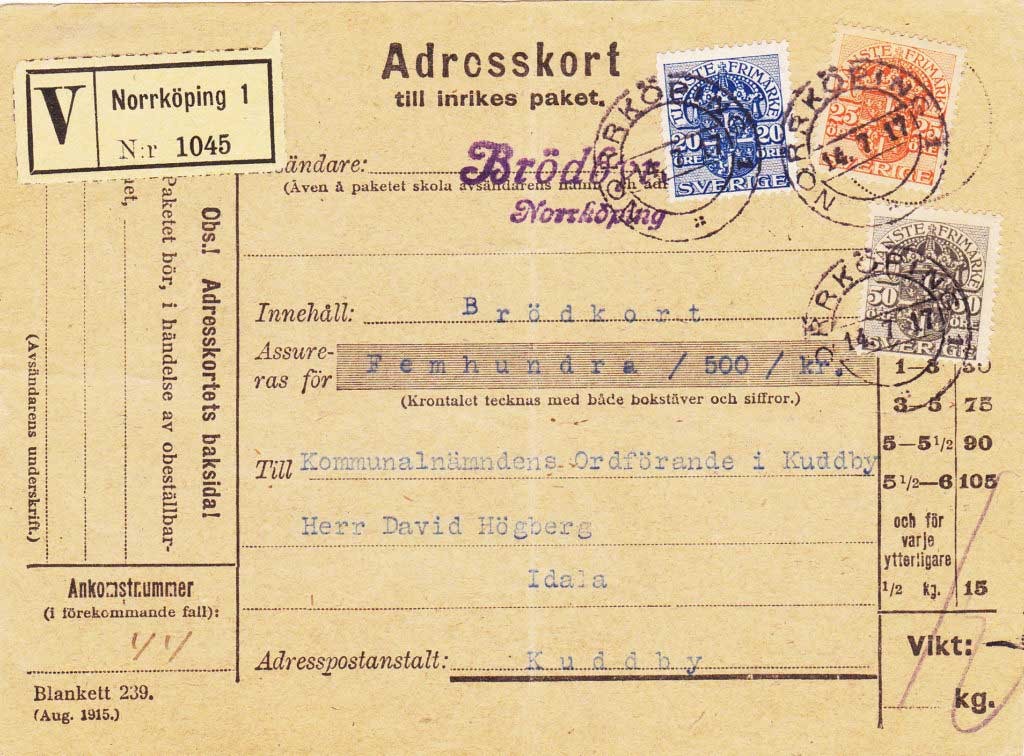 Adresskort
till inrikes paket.
V Norrköping 1
N:r 1045
Avsändare:
(Även å paketet skola avsändarens namn och
Norrköping
TJÄNSTE FRIMÄRKE
20 20
ÖRE ÖRE
SVERIGE
NORRKÖPING 1
14.
TJÄNSTE FRIMÄRKE
25 25
ÖRE
SVERIGE
NORRKÖPING 1
14.7.17
TJÄNSTE FRIMÄRKE
50 50
ÖRE ÖRE
SVERIGE
NORRKÖPING 1
14.7.17
Innehåll: Brödkort
Assure-
ras för Femhundra / 500 / kr.
(Krontalet tecknas med både bokstäver och siffror.)
Till Kommunalnämndens Ordförande i Kuddby
Herr David Högberg
Idala
Adresspostanstalt: Kuddby
Obs.! Adresskortets baksida!
Paketet bör, i händelse av obeställbar-
het,
(Avsändarens underskrift.)
Ankomstnummer
(i förekommande fall):
44
Blankett 239.
(Aug. 1915.)
1—3 50
3—5 75
5—5 1/2 90
5 1/2—6 105
och för
varje
ytterligare
1/2 kg. 15
Vikt:
kg.